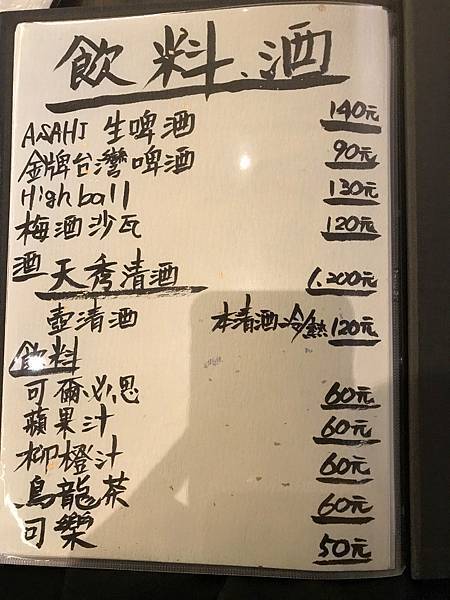 飲料.酒
ASAHI 生啤酒 140元
金牌台灣啤酒 90元
Highball 130元
梅酒沙瓦 120元
酒 天秀清酒 1,200元
壺清酒 本清酒冷/熱 120元
飲料
可爾必思 60元
蘋果汁 60元
柳橙汁 60元
烏龍茶 60元
可樂 50元